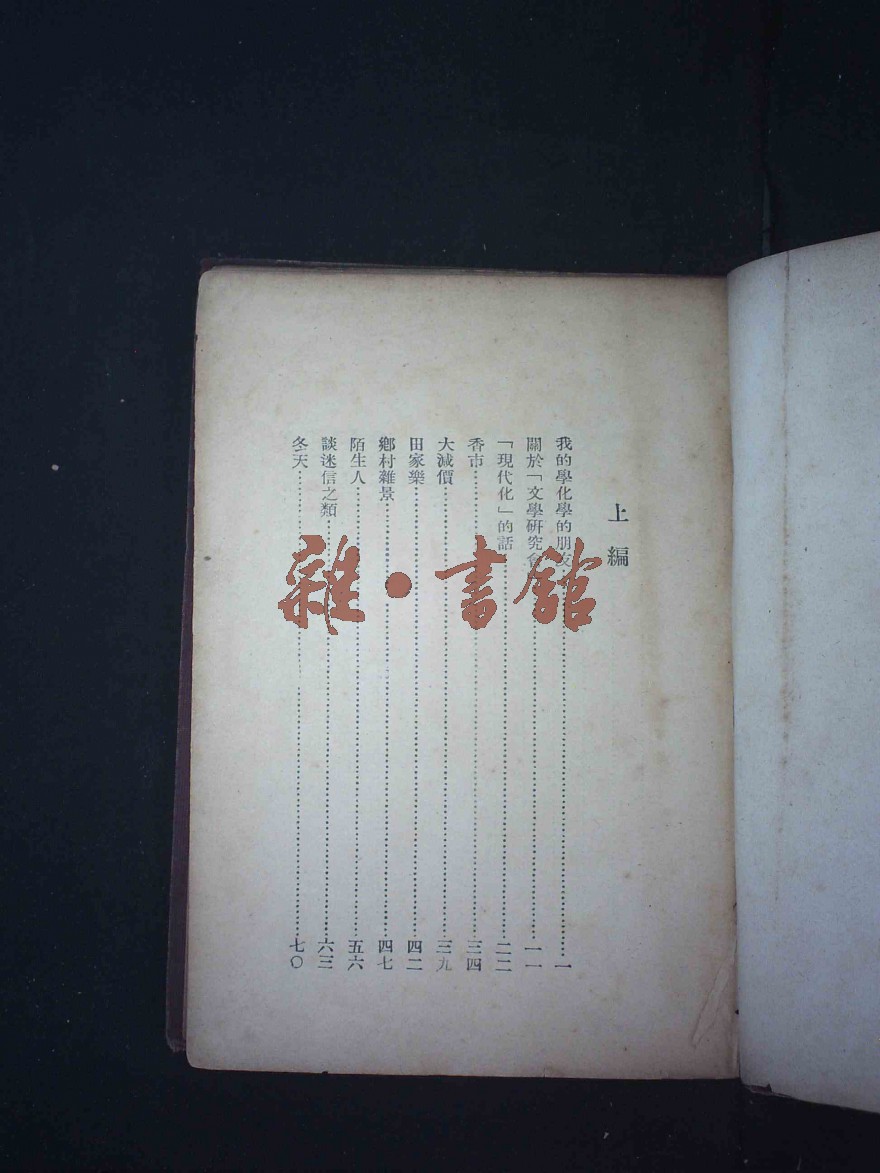 上編
我的學化學的朋友…………一
關於「文學研究會…………一一
「現代化」的話…………二二
香市…………三四
大減價…………三九
田家樂…………四二
鄉村雜景…………四七
陌生人…………五六
談迷信之類…………六三
冬天…………七〇
雜·書館